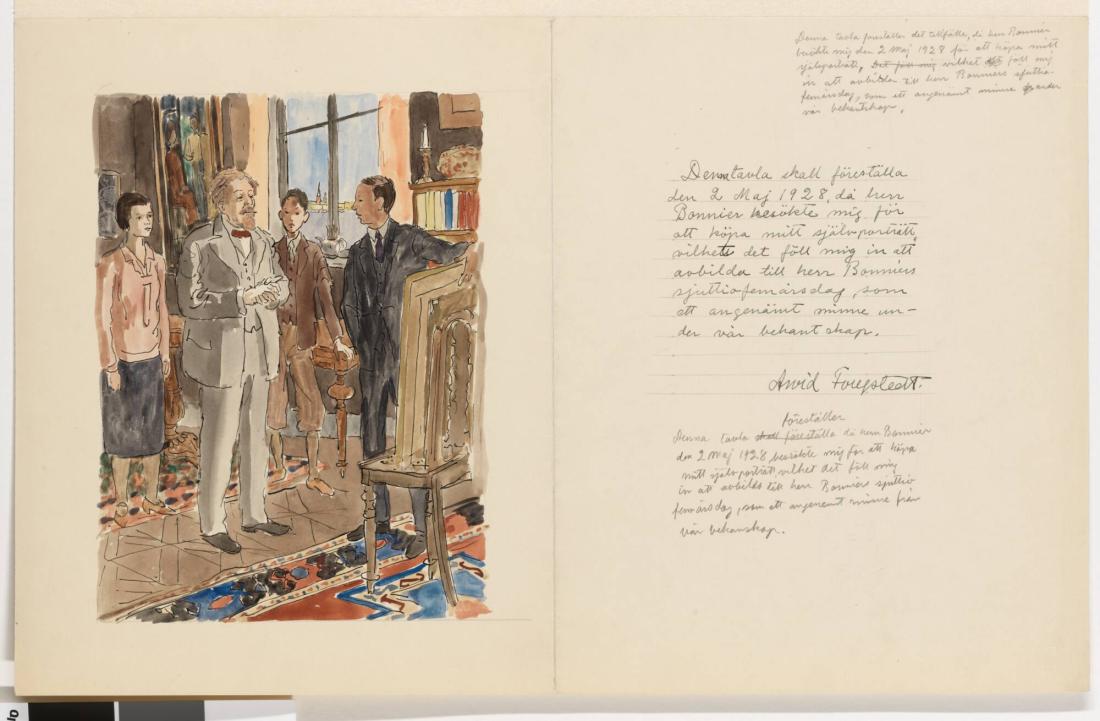 Denna tavla föreställer det tillfälle, då herr Bonnier
besökte mig den 2 Maj 1928 för att köpa mitt
självporträtt, Det föll mig vilhet föll mig
in att avbilda till herr Bonniers sjuttio-
femårsdag, som ett angenämt minne under
vår bekantskap.
Denna tavla skall föreställa
den 2 Maj 1928, då herr
Bonnier besökte mig för
att köpa mitt självporträtt,
vilhets det föll mig in att
avbilda till herr Bonniers
sjuttiofemårsdag, som
ett angenämt minne un-
der vår bekantskap.
Arvid Fougstedt.
föreställer
Denna tavla skall föreställa då herr Bonnier
den 2 Maj 1928 besökte mig för att köpa
mitt självporträtt, vilhet det föll mig
in att avbilda till herr Bonniers sjuttio
femårsdag, som ett angenämt minne från
vår bekanskap.